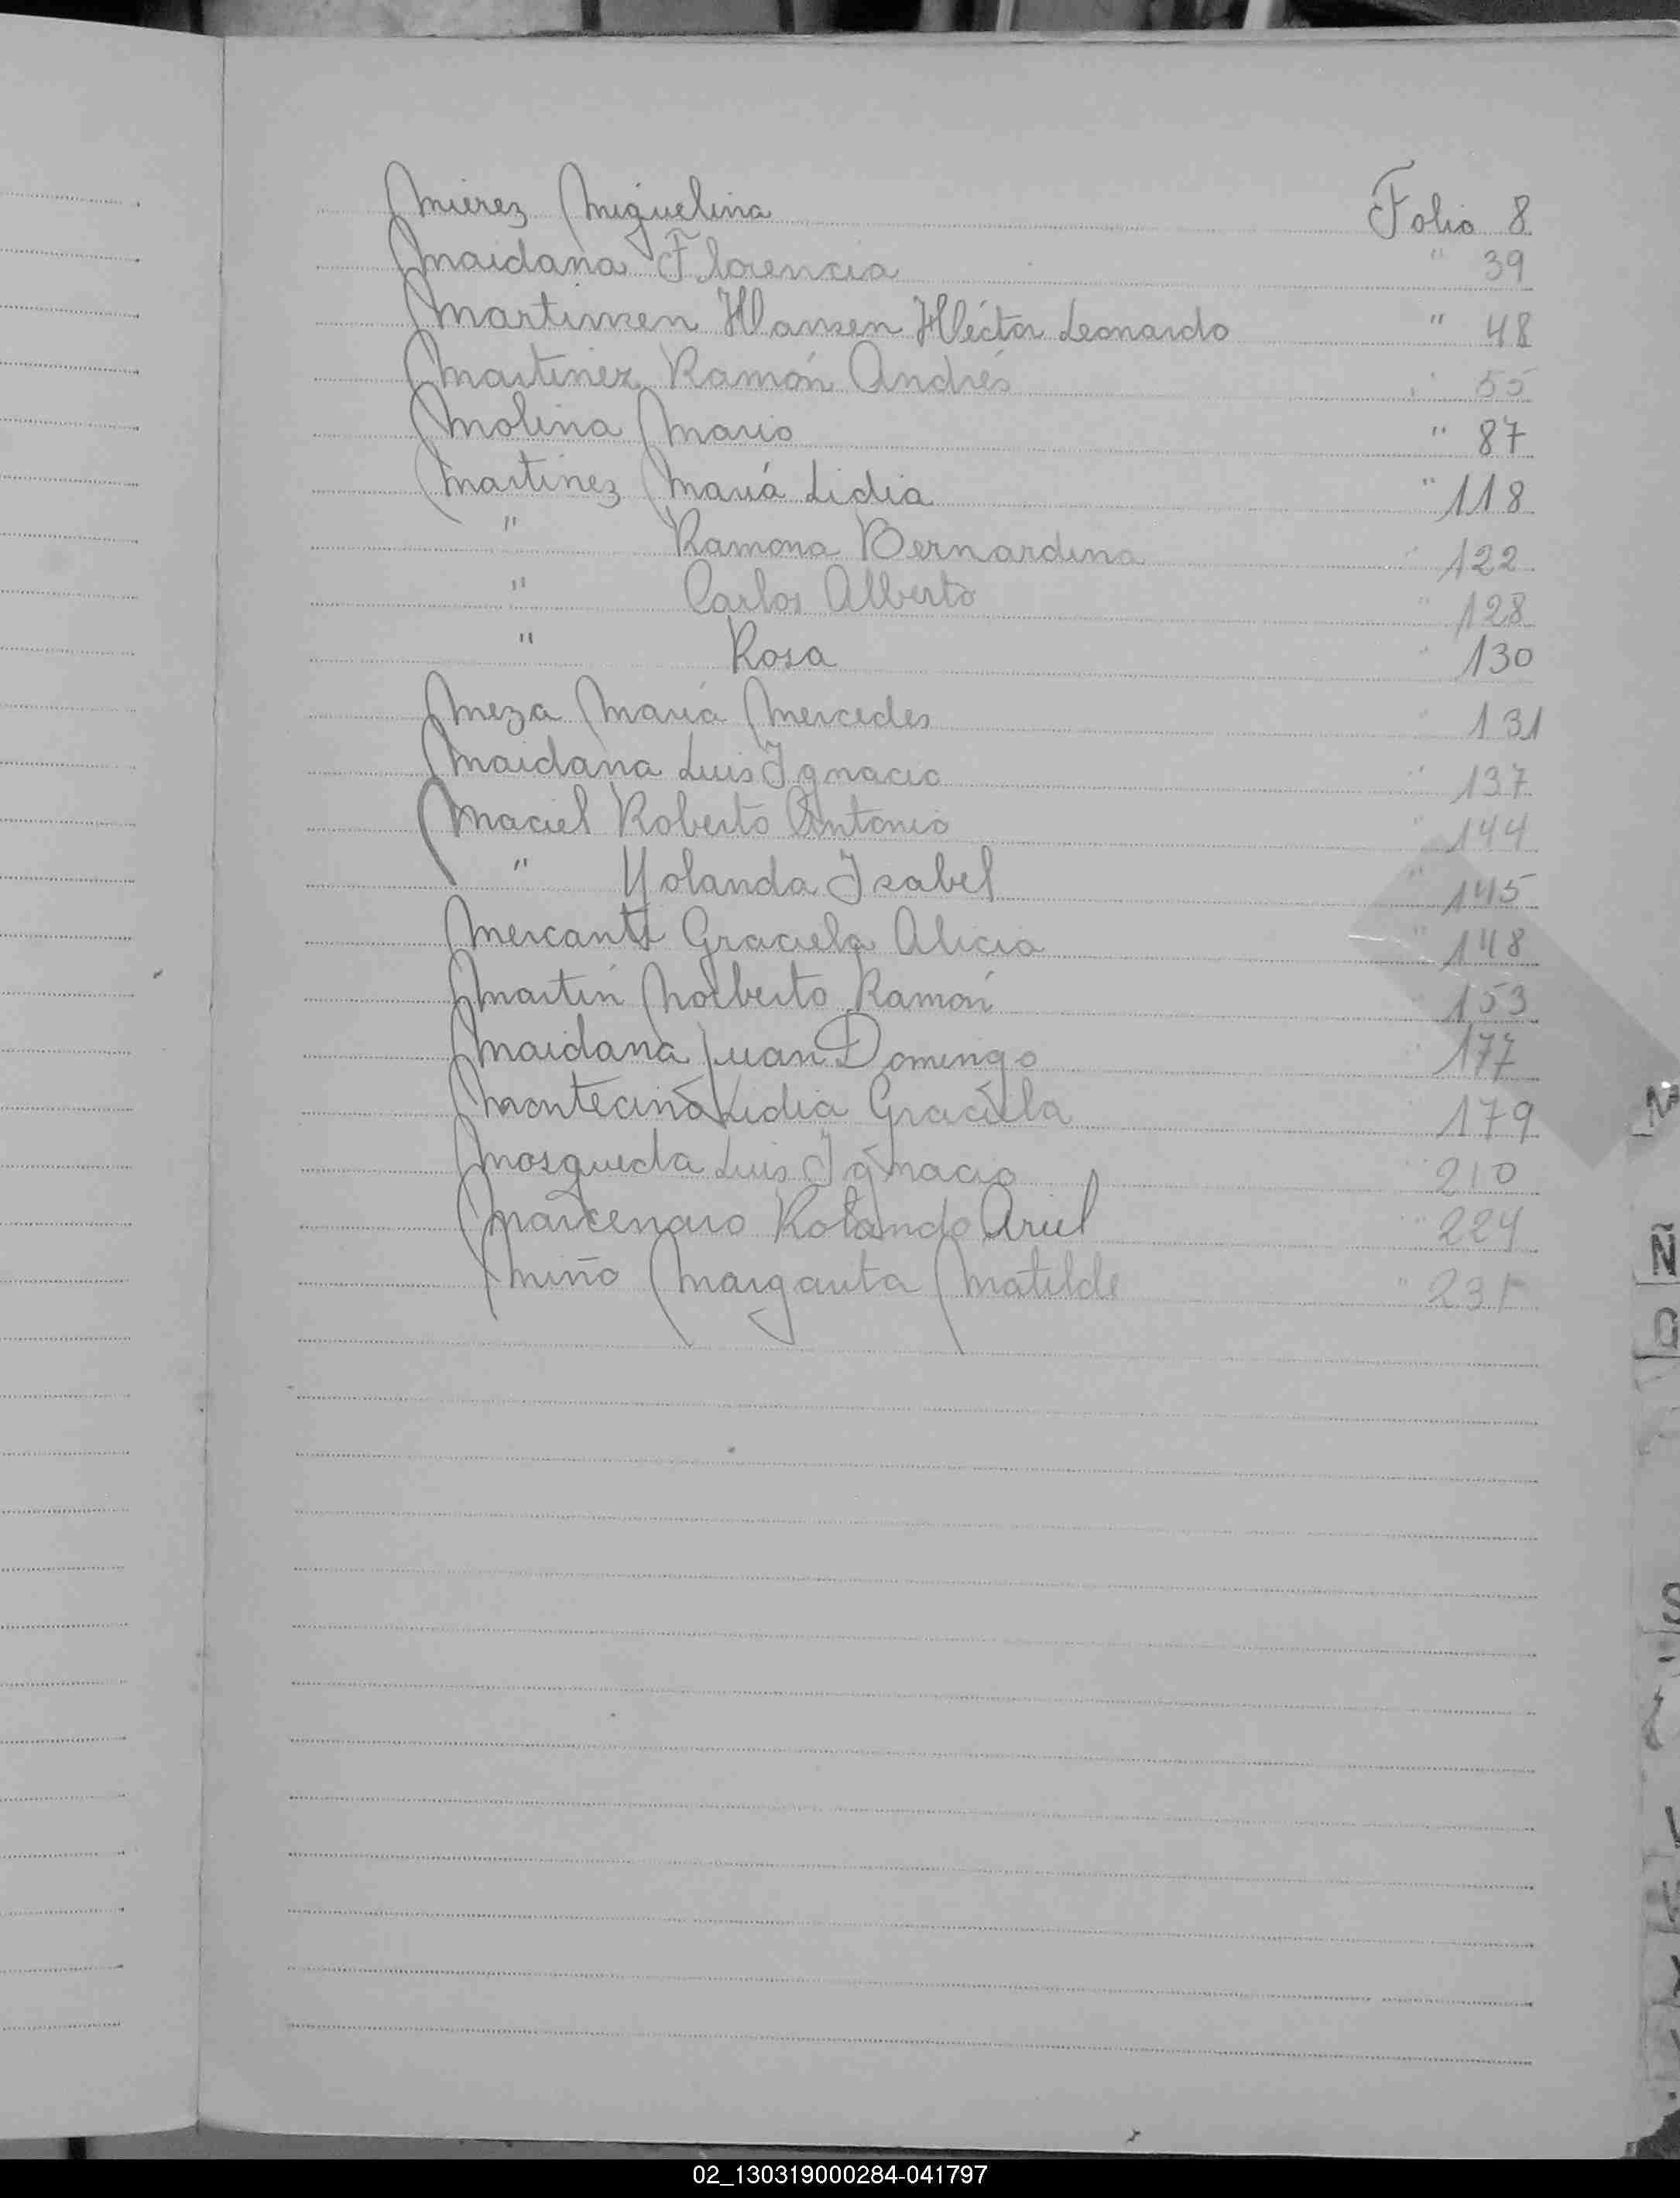 Mierez Miguelina Folio 8
Maidana Florencia " 39
Martinsen Hansen Héctor Leonardo " 48
Martinez Ramón Andrés " 55
Molina Mario " 87
Martinez María Lidia " 118
" Ramona Bernardina " 122
" Carlos Alberto " 128
" Rosa " 130
Meza María Mercedes " 131
Maidana Luis Ignacio " 137
Maciel Roberto Antonio " 144
" Yolanda Isabel " 145
Mercanti Graciela Alicia " 148
Martín Norberto Ramón " 153
Maidana Juan Domingo " 177
Montecino Lidia Graciela " 179
Mosqueda Luis Ignacio " 210
Marcenaro Rolando Ariel " 224
Miño Margarita Matilde " 231
M
Ñ
S
02_130319000284-041797